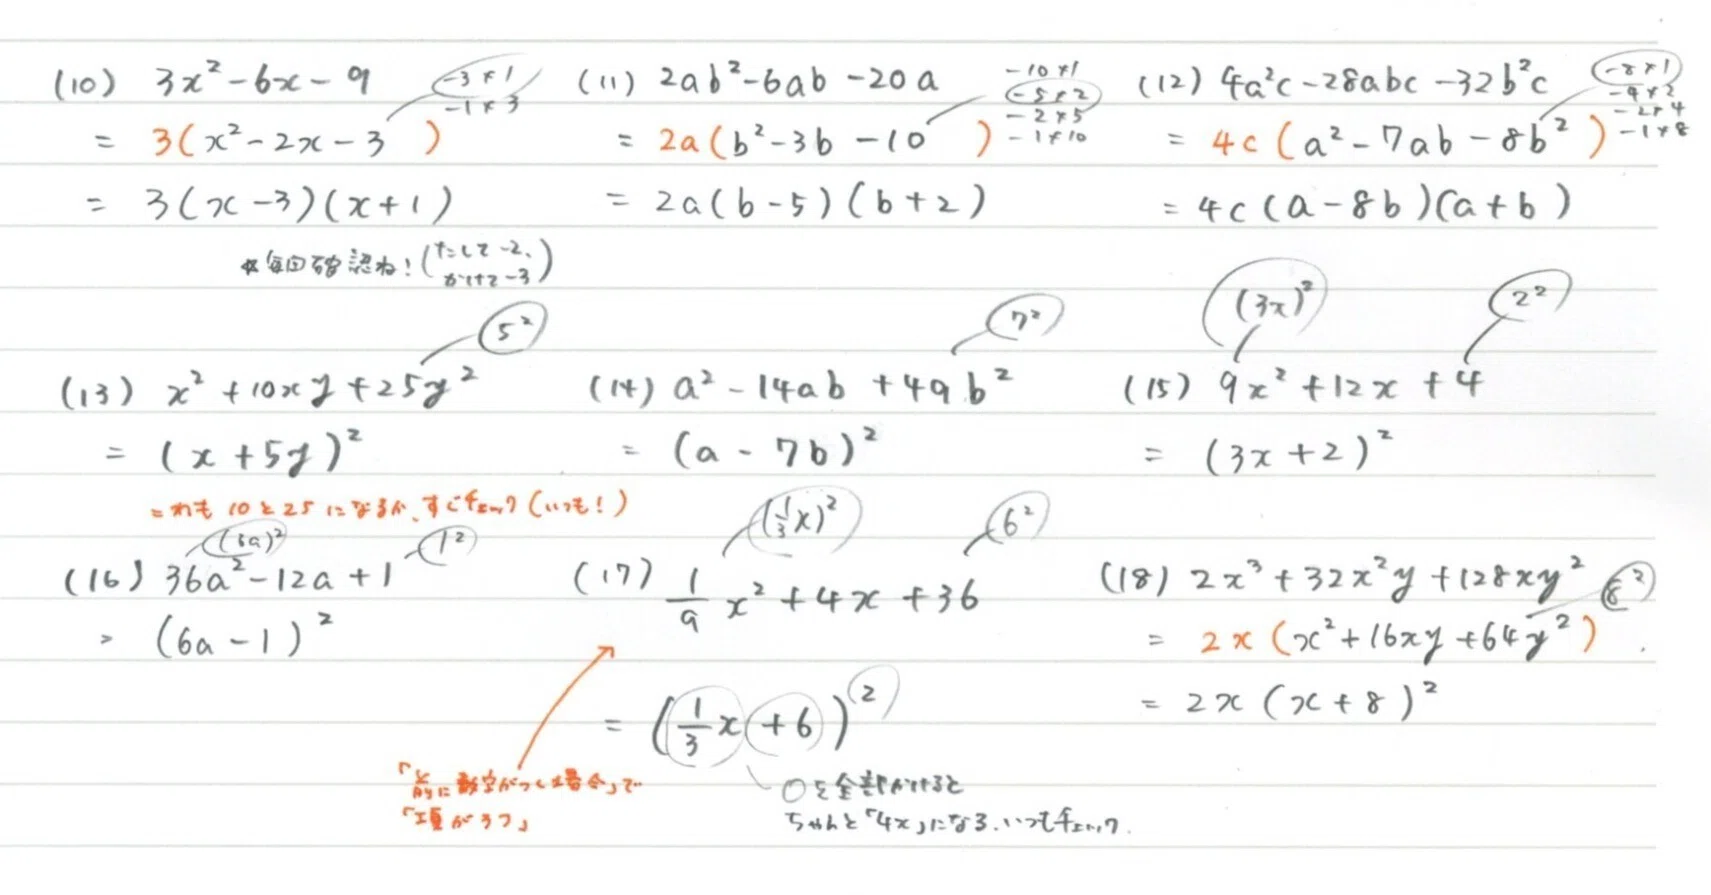 (10) 3x² - 6x - 9
-3 × 1
-1 × 3
= 3(x² - 2x - 3)
= 3(x - 3)(x + 1)
※毎回確認ね! (たして-2、かけて-3)
(11) 2ab² - 6ab - 20a
-10 × 1
-5 × 2
-2 × 5
-1 × 10
= 2a(b² - 3b - 10)
= 2a(b - 5)(b + 2)
(12) 4a²c - 28abc - 32b²c
-8 × 1
-4 × 2
-2 × 4
-1 × 8
= 4c(a² - 7ab - 8b²)
= 4c(a - 8b)(a + b)
5²
(13) x² + 10xy + 25y²
= (x + 5y)²
これも 10と25になるか、すぐチェック(いつも!)
7²
(14) a² - 14ab + 49b²
= (a - 7b)²
(3x)² 2²
(15) 9x² + 12x + 4
= (3x + 2)²
(6a)² 1²
(16) 36a² - 12a + 1
= (6a - 1)²
(1/3 x)² 6²
(17) 1/9 x² + 4x + 36
= (1/3 x + 6)²
「前に数字がつく場合」で
「項が3つ」
○を全部かけると
ちゃんと「4x」になる.いつもチェック.
(18) 2x³ + 32x²y + 128xy²
8²
= 2x(x² + 16xy + 64y²)
= 2x(x + 8)²